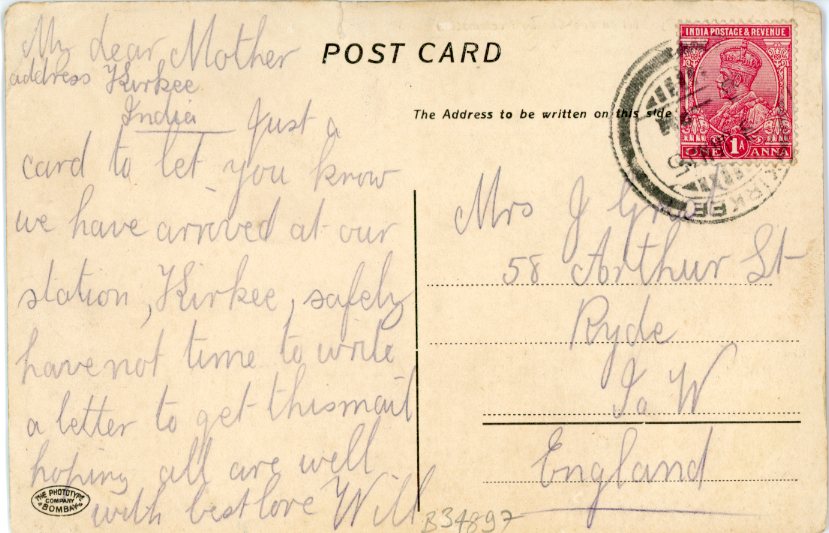 My dear Mother
address Kirkee
India Just a
card to let you know
we have arrived at our
station, Kirkee, safely
have not time to write
a letter to get this mail
hoping all are well
with best love Will
THE PHOTOTYPE
COMPANY
BOMBAY
B34897
POST CARD
The Address to be written on this side
INDIA POSTAGE & REVENUE
ONE 1A ANNA
KIRKEE
Mrs J
58 Arthur St
Ryde
I o W
England